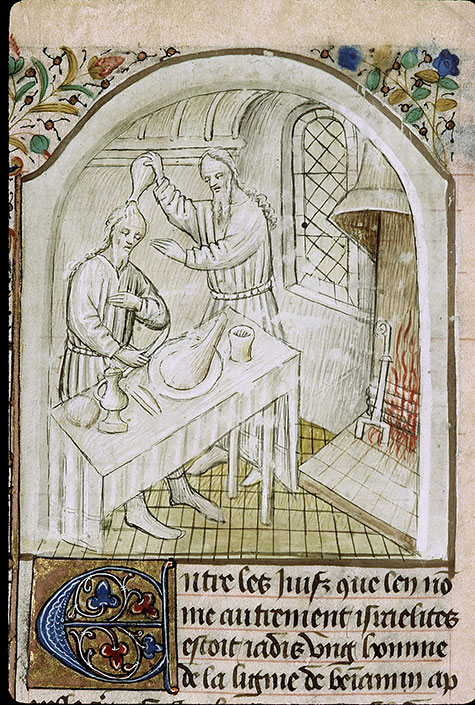 Entre les iuifz que len nō
me autrement israelites
estoit iadis vng homme
de la lignie de beniamin ap